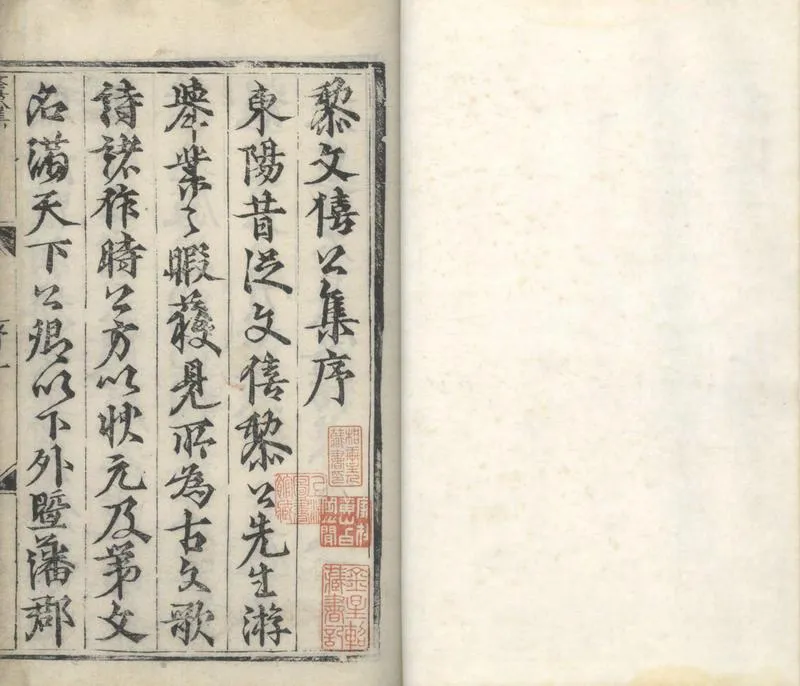 黎文僖公集序
東陽昔從文僖黎公先生游
舉業之暇獲見所為古文歌
詩諸作時公方以狀元及第文
名滿天下公卿以下外暨藩郡
序一